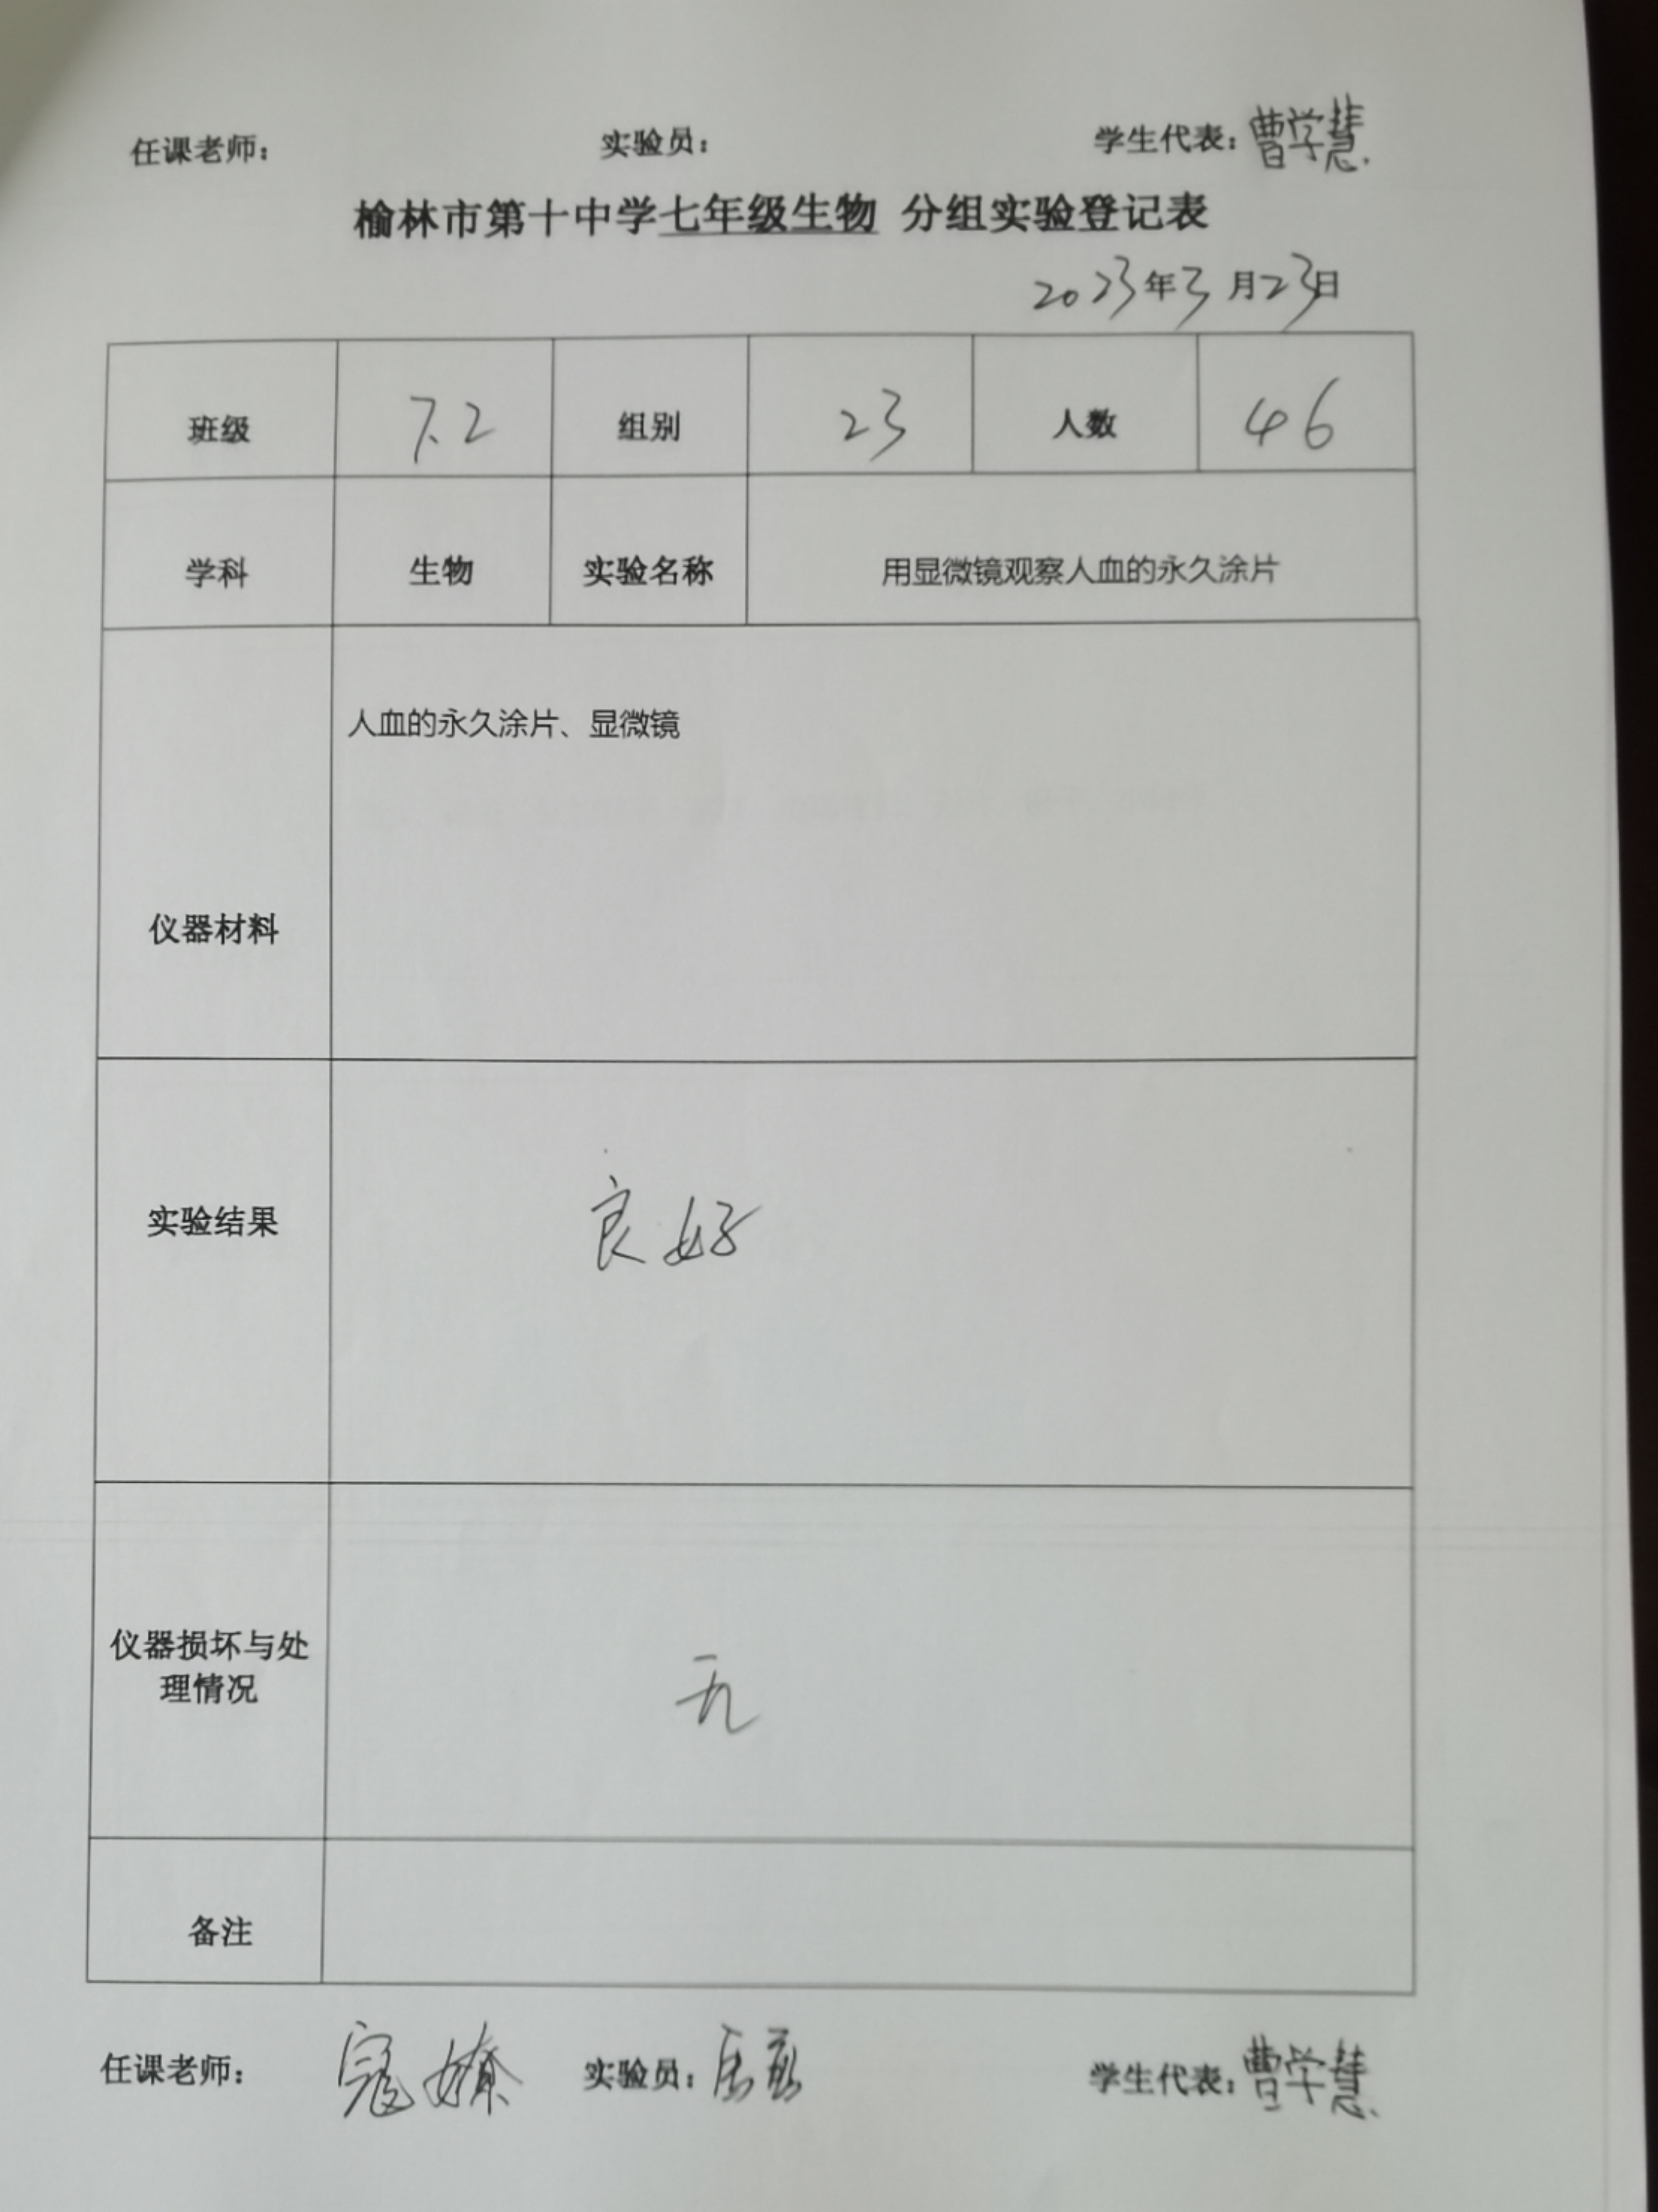 任课老师： 实验员： 学生代表：曹学慧
榆林市第十中学七年级生物 分组实验登记表
2023年3月23日
班级 7.2 组别 23 人数 46
学科 生物 实验名称 用显微镜观察人血的永久涂片
仪器材料 人血的永久涂片、显微镜
实验结果 良好
仪器损坏与处
理情况 无
备注
任课老师： 寇 实验员： 学生代表：曹学慧